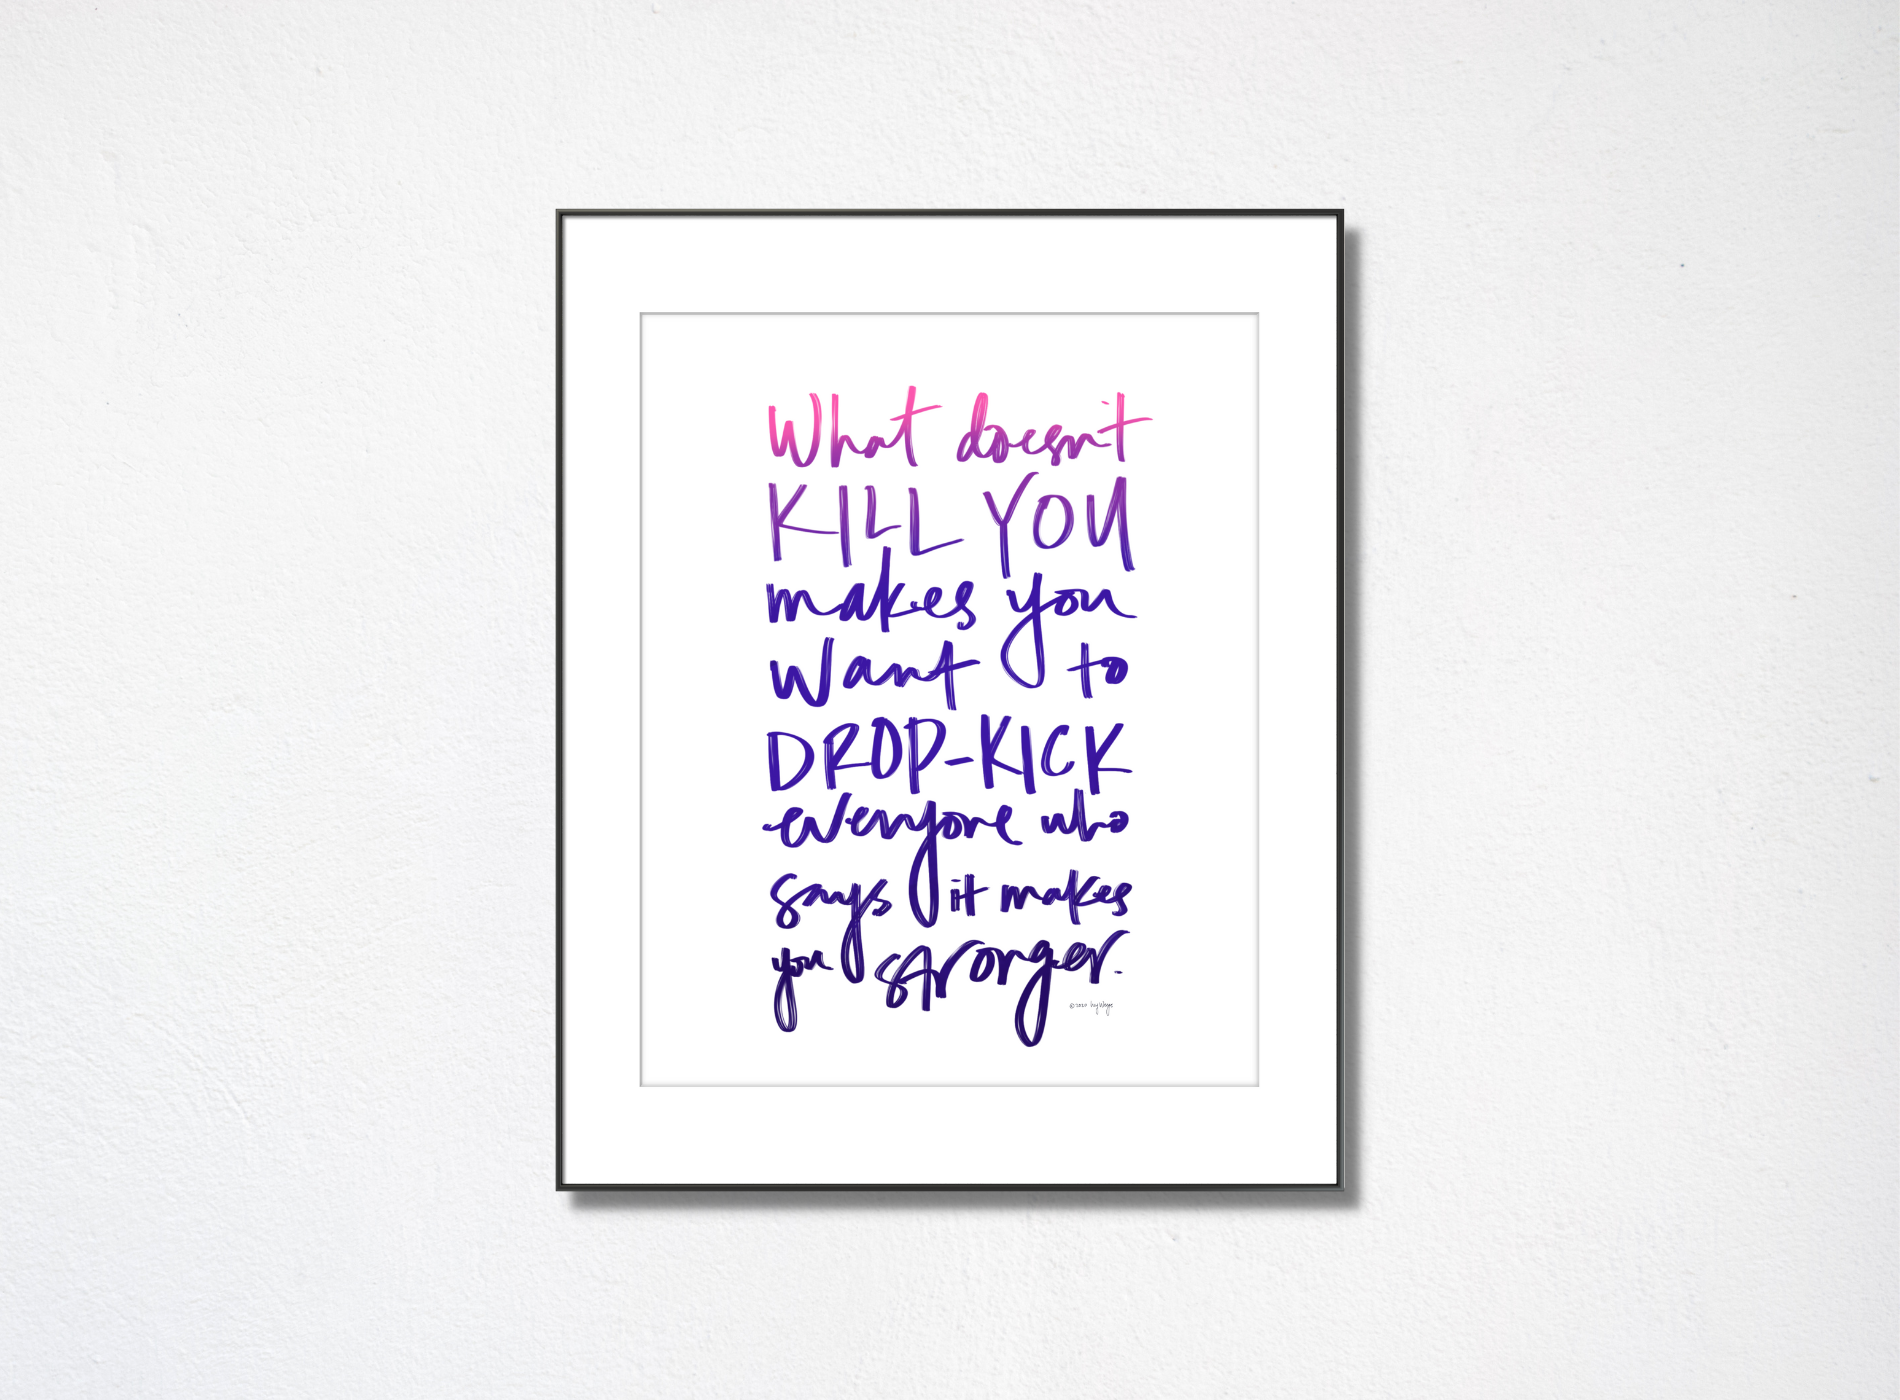 What doesn't
KILL YOU
makes you
want to
DROP-KICK
everyone who
says it makes
you stronger.
©2020